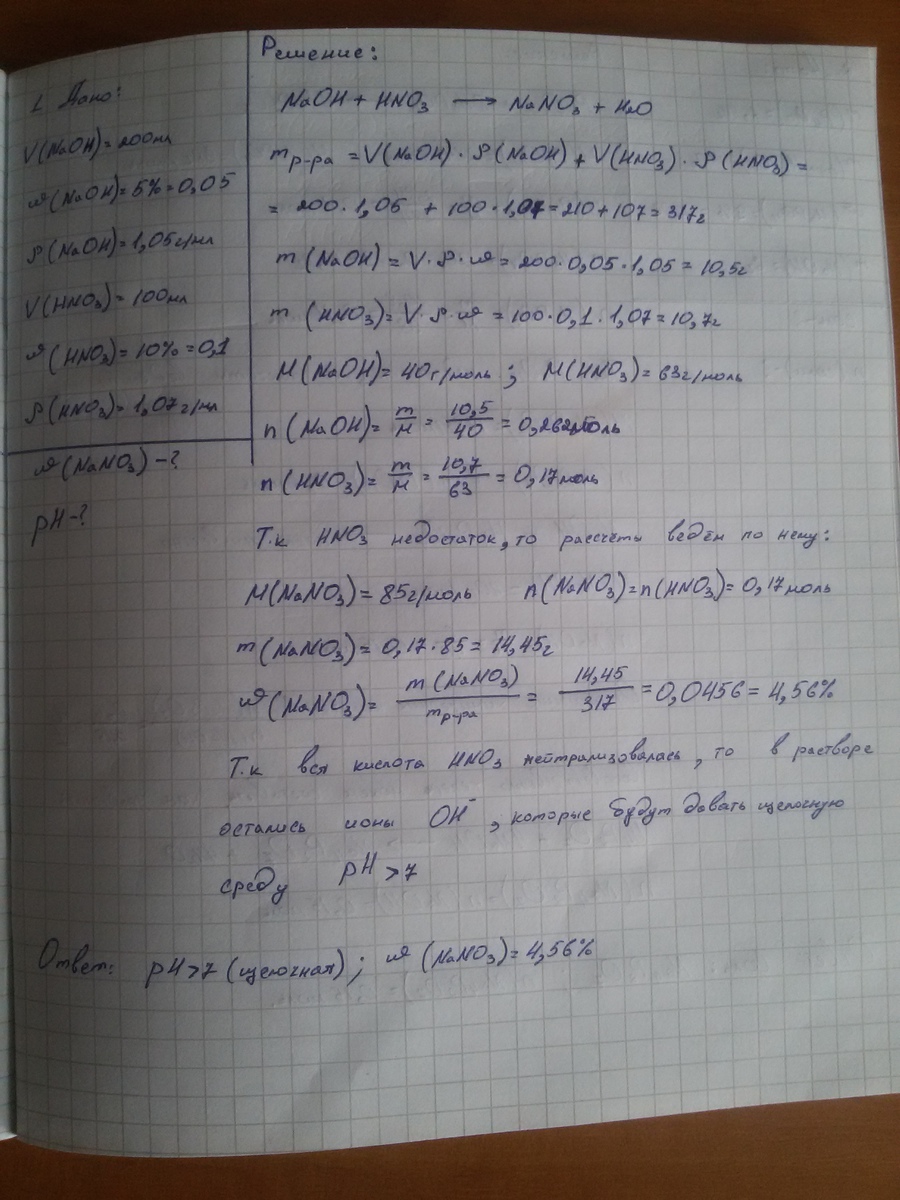 1 Дано:
V(NaOH)=200мл
ω(NaOH)=5%=0,05
ρ(NaOH)=1,05г/мл
V(HNO3)=100мл
ω(HNO3)=10%=0,1
ρ(HNO3)=1,07г/мл
ω(NaNO3)-?
pH-?
Решение:
NaOH + HNO3 → NaNO3 + H2O
mр-ра = V(NaOH)·ρ(NaOH) + V(HNO3)·ρ(HNO3) =
= 200·1,05 + 100·1,07=210+107=317г
m(NaOH) = V·ρ·ω = 200·0,05·1,05 = 10,5г
m(HNO3)= V·ρ·ω = 100·0,1·1,07=10,7г
M(NaOH)= 40г/моль; M(HNO3)= 63г/моль
n(NaOH)= m/M = 10,5/40 = 0,262моль
n(HNO3)= m/M = 10,7/63 = 0,17моль
Т.к HNO3 недостаток, то рассчёты ведём по нему:
M(NaNO3)= 85г/моль n(NaNO3)=n(HNO3)= 0,17моль
m(NaNO3)= 0,17·85= 14,45г
ω(NaNO3)= m(NaNO3)/mр-ра = 14,45/317 = 0,0456 = 4,56%
Т.к вся кислота HNO3 нейтрализовалась, то в растворе
остались ионы OH⁻, которые будут давать щелочную
среду pH >7
Ответ: pH>7 (щелочная); ω(NaNO3)= 4,56%